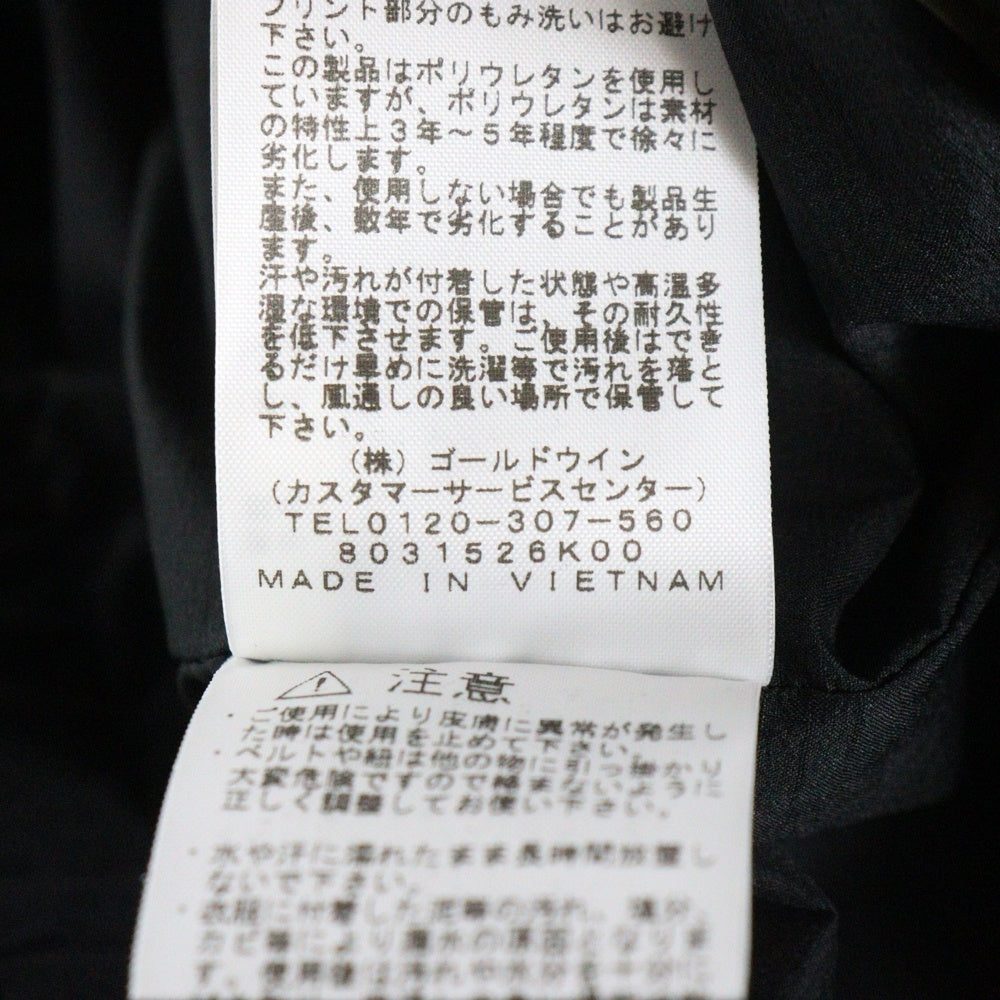 プリント部分のもみ洗いはお避け
下さい。
この製品はポリウレタンを使用し
ていますが、ポリウレタンは素材
の特性上3年〜5年程度で徐々に
劣化します。
また、使用しない場合でも製品生
産後、数年で劣化することがあり
ます。
汗や汚れが付着した状態や高温多
湿な環境での保管は、その耐久性
を低下させます。ご使用後はでき
るだけ早めに洗濯等で汚れを落と
し、風通しの良い場所で保管して
下さい。
(株)ゴールドウイン
(カスタマーサービスセンター)
TEL0120-307-560
8031526K00
MADE IN VIETNAM
⚠ 注意
・ご使用により皮膚に異常が発生し
た時は使用を止めて下さい。
・ベルトや紐は他の物に引っ掛かり
大変危険ですので絡まないように
正しく調整してお使い下さい。
・水や汗に濡れたまま長時間放置し
ないで下さい。
・衣服に付着した泥等の汚れ、塩分、
カビ等により撥水の原因となりま
す。使用後は汚れや水分を十分に